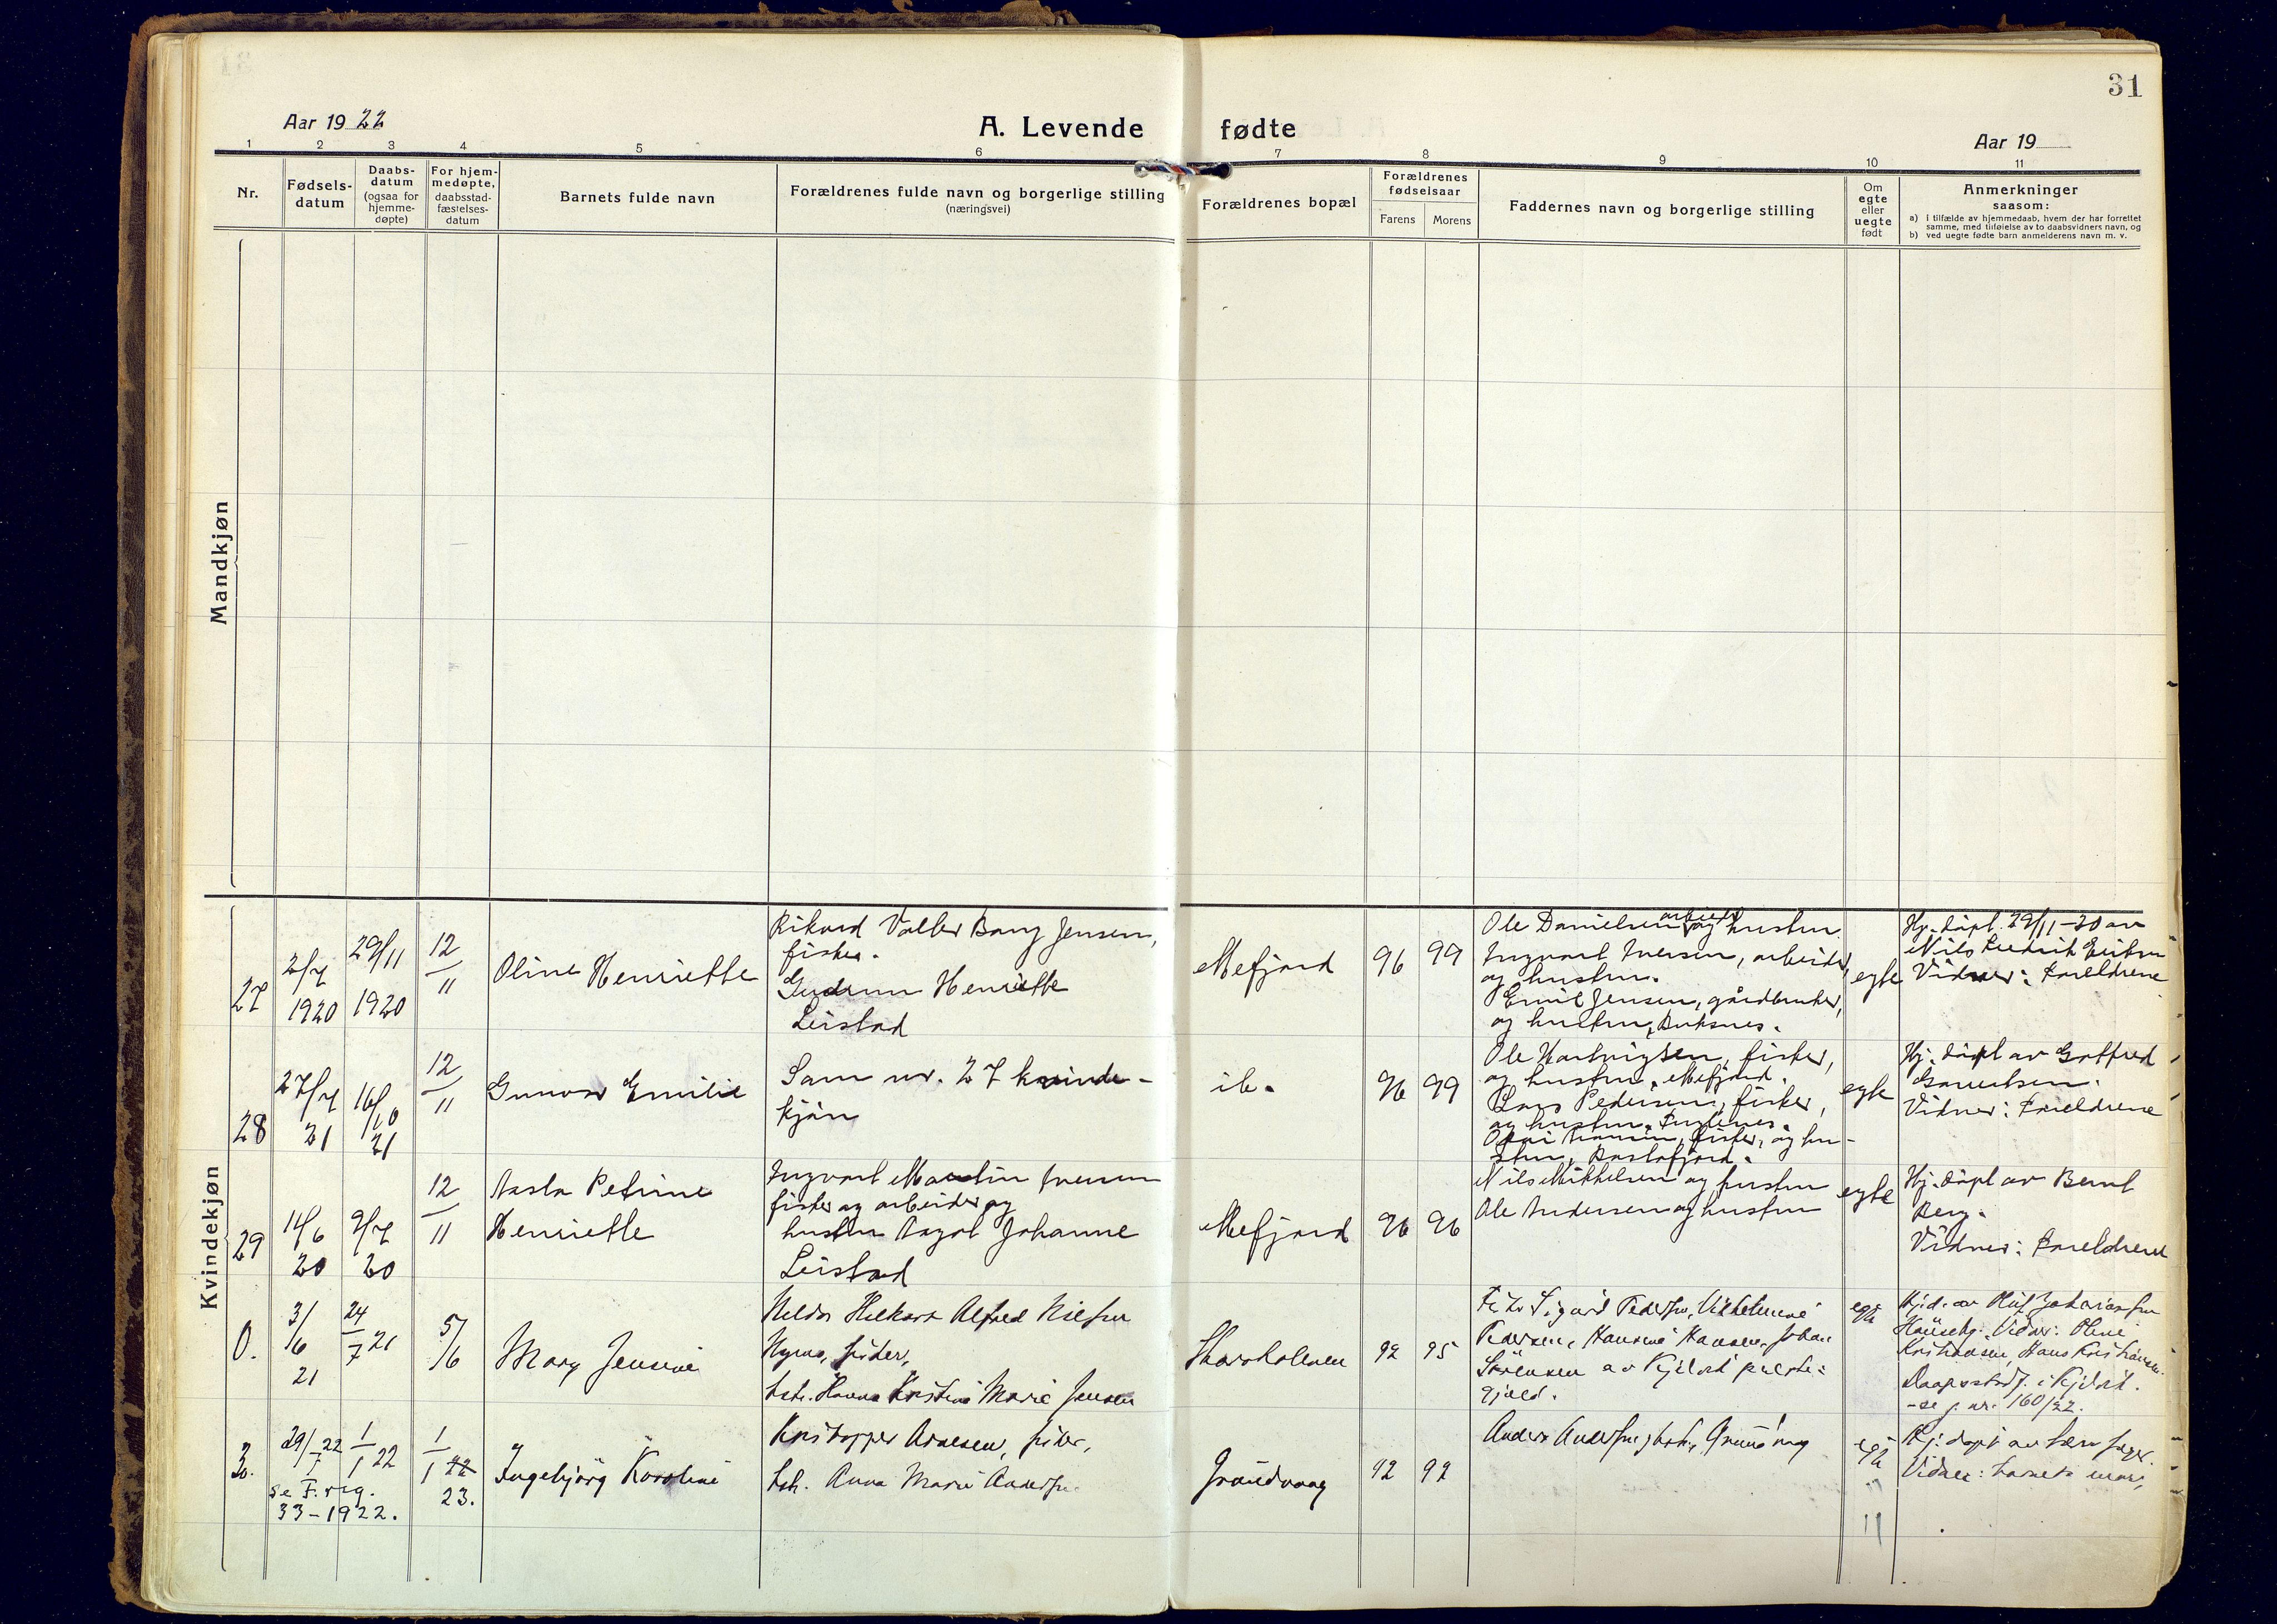 31
Aar 1922
A. Levende fødte
Aar 19
1 2 3 4 5 6 7 8 9 10 11
Nr.
Fødsels-
datum
Daabs-
datum
(ogsaa for
hjemme-
døpte)
For hjem-
medøpte,
daabsstad-
fæstelses-
datum
Barnets fulde navn
Forældrenes fulde navn og borgerlige stilling
(næringsvei)
Forældrenes bopæl
Forældrenes
fødselsaar
Farens Morens
Faddernes navn og borgerlige stilling
Om
egte
eller
uegte
født
Anmerkninger
saasom:
a) i tilfælde av hjemmedaab, hvem der har forrettet
samme, med tilføielse av to daabsvidners navn, og
b) ved uegte fødte barn anmelderens navn m. v.
Mandkjøn
Kvindekjøn
27
2/7
1920
29/11
1920
12
11
Oline Henriette
Rikard Valler Bang Jensen,
fisker.
Gudrun Henriette
Leistad
Mefjord
96 99
Ole Danielsen arbeider og hustru
Ingvart Iversen, arbeider,
og hustru.
Emil Jensen, gårdbruker,
og hustru, Buksnes.
egte
Hj. døpt 29/11-20 av
Nils Fredrik Eriksen
Vidner: Foreldrene
28
27/7
21
16/10
21
12
11
Gunvor Emilie
Sam nr. 27 kvinde-
kjøn
ib.
96 99
Ole Hartvigsen, fisker,
og hustru, Mefjord.
Lars Pedersen, fisker,
og hustru,
fisker, og hu-
stru,
egte
Hj. døpt av Gotfred
Vidner: Foreldrene
29
11/6
20
9/7
20
12
11
Aasta Petrine
Henriette
Ingvart Martin Iversen
fisker og arbeider og
hustru Johanne
Leistad
Mefjord
96 96
Nils Mikkelsen og hustru
Ole Andersen og hustru
egte
Hj. døpt av Bernt
Berg.
Vidner: Foreldrene
0.
3/
6
21
24
7 21
5/
6
Mary Jensine
Alfred Nilsen
fisker,
hstr. Hanna Kristine Marie Jensen
92 95
Sigurd Pedersen,
Pedersen, Hansine Hansen, Johan
Sørensen av præste-
gjæld.
egte
Hjd. av Oluf Zakariassen
Vidner: Oline
Kristiansen, Hans Kristiansen.
Daapsstadf. i
-se j. nr. 160/22.
3.
29/22
7
1
1 22
1
1 22
23.
se F. rig.
33-1922.
Ingebjörg Karoline
Kristoffer Arnesen, fisker,
hstr. Anna Marie Andersen
92 92
Anders Andersen, hstr.,
egte
Hj. døpt av
Vidner: barnets mor,
11